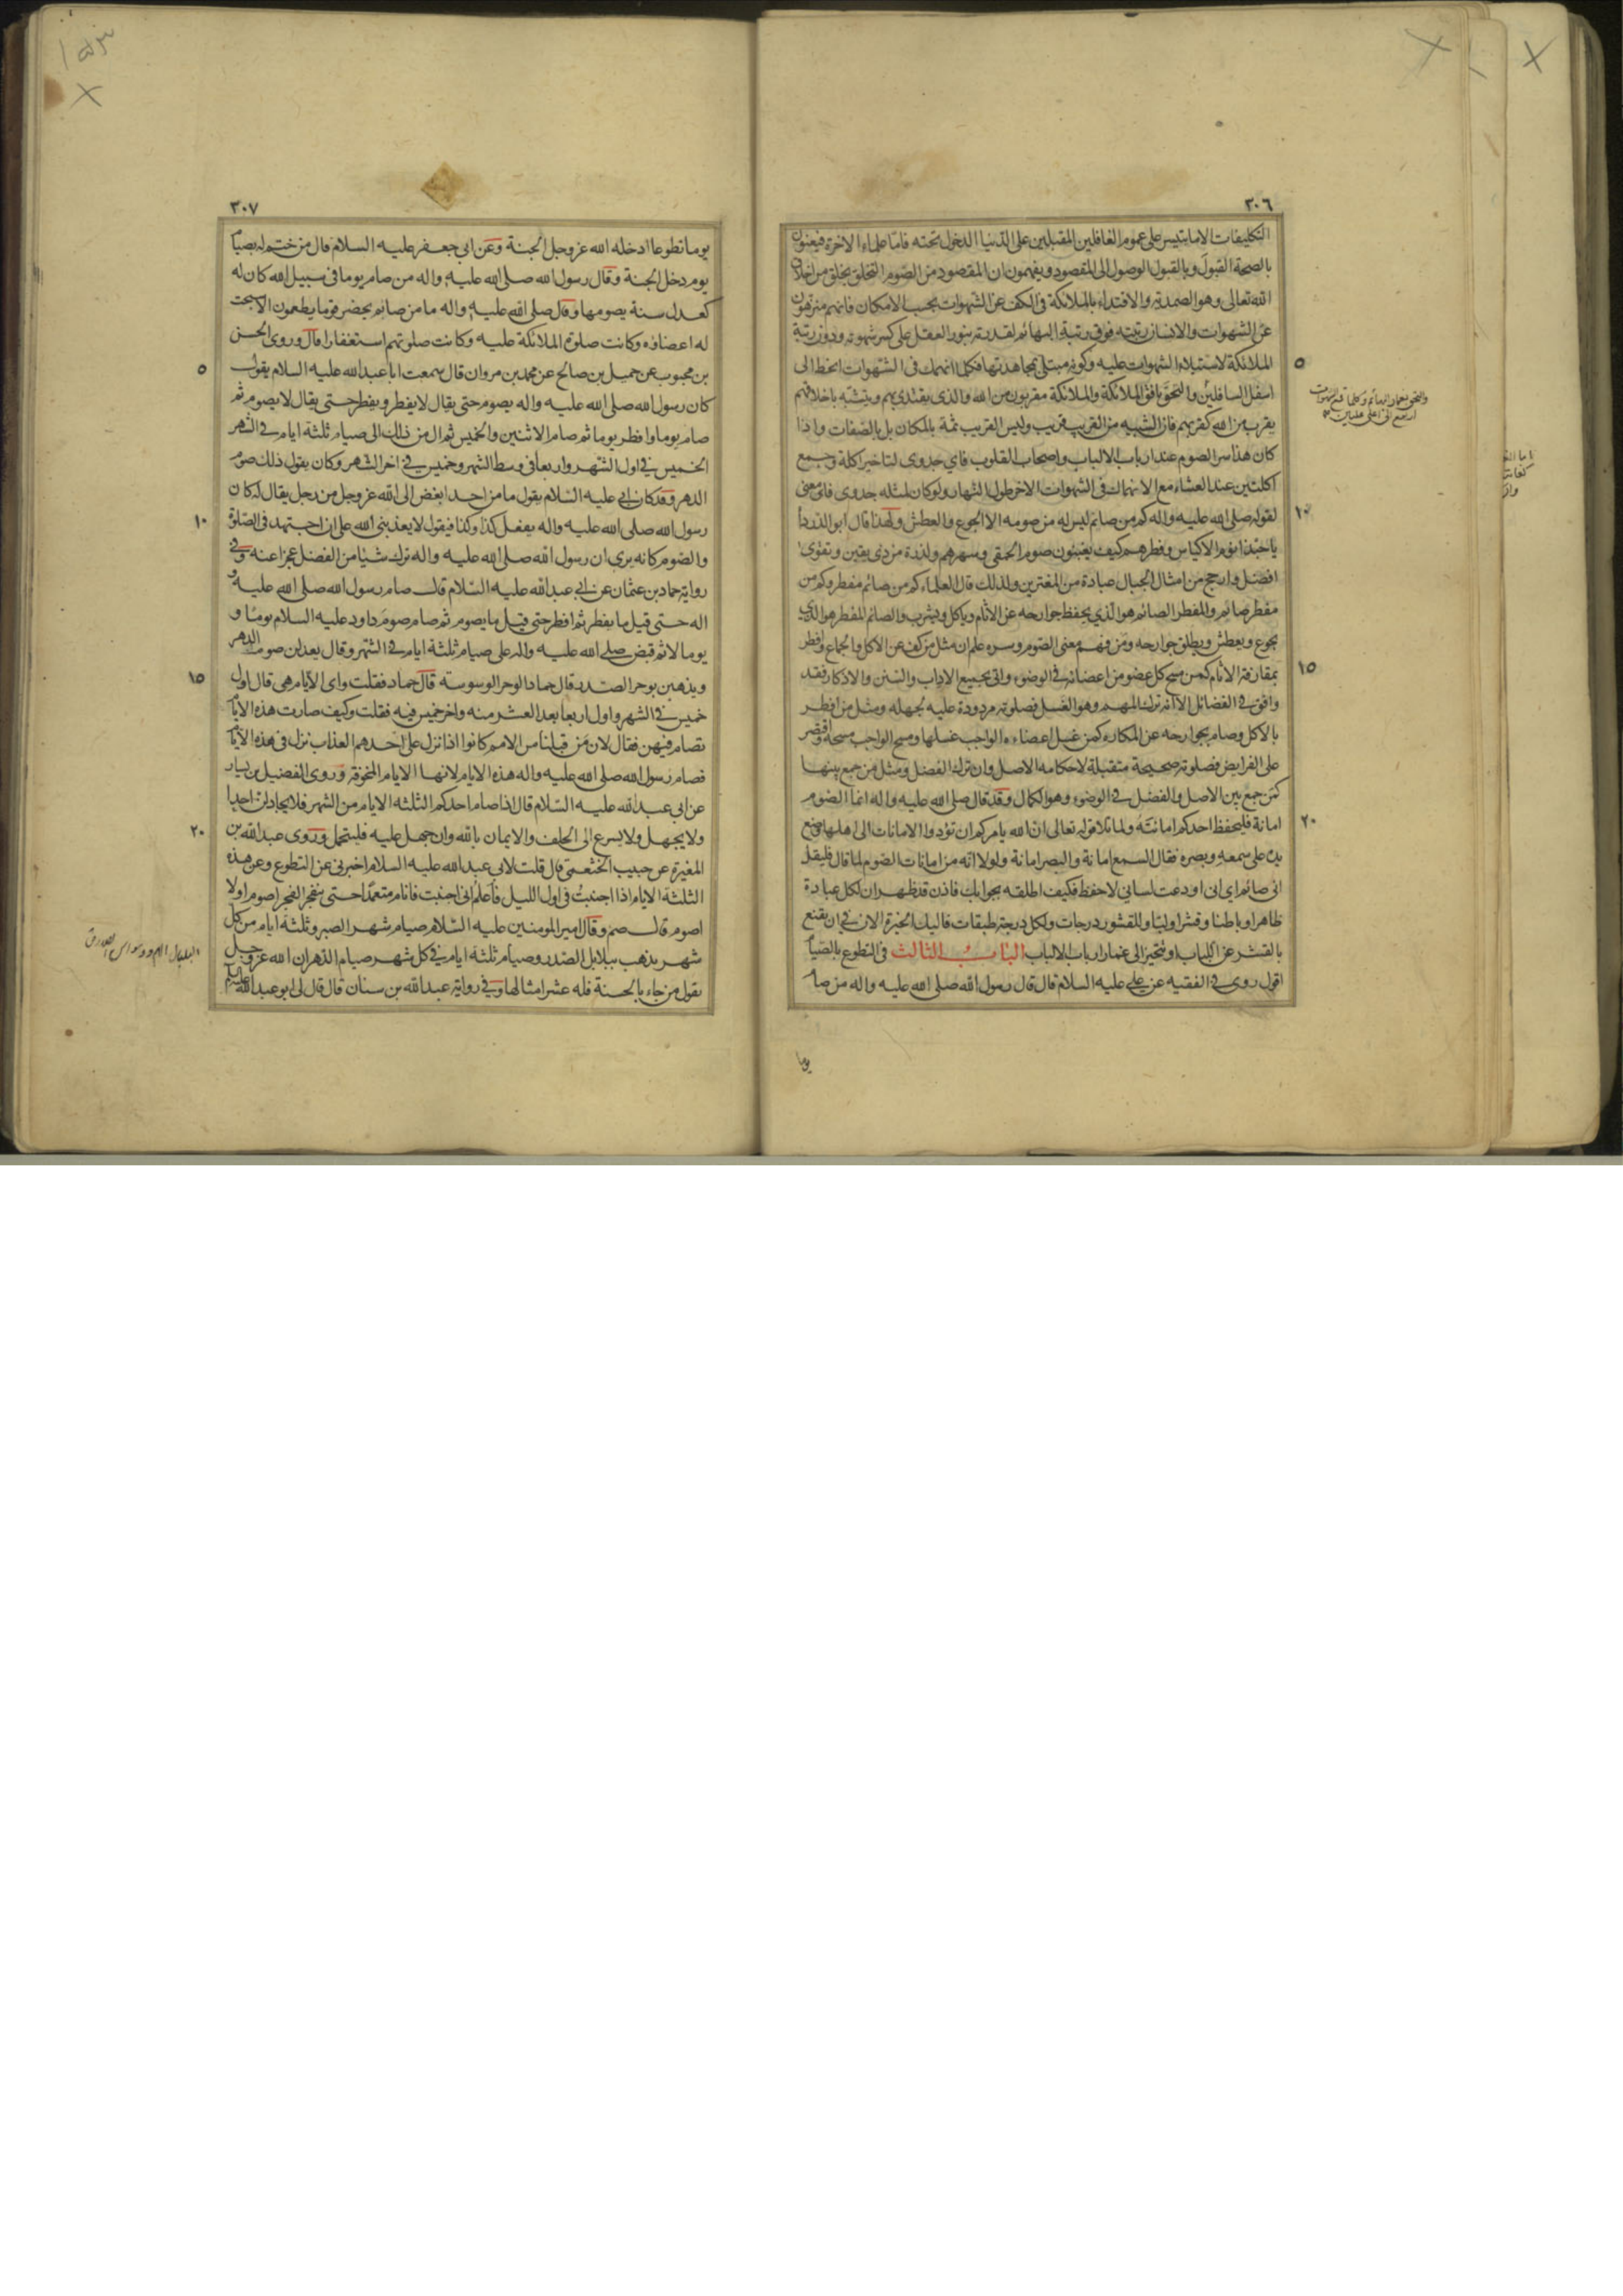 ٣٠٦
التكليفات الا ما يتيسر على عموم الغافلين المقبلين على الدنيا الدخول تحته فاما علماء الاخرة فيعنون
بالصحة القبول وبالقبول الوصول الى المقصود ويفهمون ان المقصود من الصوم التخلق بخلق من اخلاق
الله تعالى وهو الصمدية والاقتداء بالملائكة فى الكف عن الشهوات بحسب الامكان فانهم منزهون
عن الشهوات والانسان رتبته فوق رتبة البهائم لقدرته بنور العقل على كسر شهوته ودون رتبة
٥
الملائكة لاستيلاء الشهوات عليه وكونه مبتلى بمجاهدتها فكلما انهمك فى الشهوات انحط الى
اسفل السافلين والتحق بافق الملائكة والملائكة مقربون من الله والذى يقتدى بهم ويتشبه باخلاقهم
يقرب من الله كقربهم فان الشبيه من القريب قريب وليس القريب ثمة بالمكان بل بالصفات واذا
كان هذا سر الصوم عند ارباب الالباب واصحاب القلوب فاي جدوى لتاخير اكلة وجمع
اكلتين عند العشاء مع الانهماك فى الشهوات الاخر طول النهار ولو كان لمثله جدوى فاى معنى
١٠
لقوله صلى الله عليه واله كم من صائم ليس له من صومه الا الجوع والعطش ولهذا قال ابو الدرداء
يا حبذا نوم الاكياس وفطرهم كيف يغبنون صوم الحمقى وسهرهم ولذرة من ذى يقين وتقوى
افضل وارجح من امثال الجبال عبادة من المغترين ولذلك قال العلماء كم من صائم مفطر وكم من
مفطر صائم والمفطر الصائم هو الذي يحفظ جوارحه عن الاثام وياكل ويشرب والصائم المفطر هو الذي
يجوع ويعطش ويطلق جوارحه ومن فهم معنى الصوم وسره علم ان مثل من كف عن الاكل والجماع وافطر
١٥
بمقارفة الاثام كمن مسح كل عضو من اعضائه في الوضوء واتى بجميع الاداب والسنن والاذكار فقد
وافق في الفضائل الا انه ترك المهم وهو الغسل فصلوته مردودة عليه لجهله ومثل من افطر
بالاكل وصام بجوارحه عن المكاره كمن غسل اعضاءه الواجب غسلها ومسح الواجب مسحه واقتصر
على الفرايض فصلوته صحيحة متقبلة لاحكامه الاصل وان ترك الفضل ومثل من جمع بينهما
كمن جمع بين الاصل والفضل في الوضوء وهو الكمال وقد قال صلى الله عليه واله انما الصوم
٢٠
امانة فليحفظ احدكم امانته ولما تلا قوله تعالى ان الله يامركم ان تؤدوا الامانات الى اهلها وضع
يده على سمعه وبصره فقال السمع امانة والبصر امانة ولولا انه من امانات الصوم لما قال فليقل
انى صائم اي انى اودعت لسانى لاحفظ فكيف اطلقه بجوابك فاذن قد ظهر ان لكل عبادة
ظاهرا وباطنا وقشرا ولبا وللقشور درجات ولكل درجة طبقات فاليك الخيرة الان في ان تقنع
بالقشر عن اللباب او تتحيز الى غمار ارباب الالباب الباب الثالث فى التطوع بالصيام
اقول روى في الفقيه عن علي عليه السلام قال قال رسول الله صلى الله عليه واله من صام
يوما
٣٠٧
يوما تطوعا ادخله الله عز وجل الجنة وعن ابى جعفر عليه السلام قال من ختم له بصيام
يوم دخل الجنة وقال رسول الله صلى الله عليه واله من صام يوما فى سبيل الله كان له
كعدل سنة يصومها وقال صلى الله عليه واله ما من صائم يحضر قوما يطعمون الا سبحت
له اعضاؤه وكانت صلوة الملائكة عليه وكانت صلوتهم استغفارا قال وروى الحسن
٥
بن محبوب عن جميل بن صالح عن محمد بن مروان قال سمعت ابا عبد الله عليه السلام يقول
كان رسول الله صلى الله عليه واله يصوم حتى يقال لا يفطر ويفطر حتى يقال لا يصوم ثم
صام يوما وافطر يوما ثم صام الاثنين والخميس ثم ال من ذلك الى صيام ثلثة ايام في الشهر
الخميس في اول الشهر واربعا فى وسط الشهر وخميس في اخر الشهر وكان يقول ذلك صوم
الدهر وقد كان ابي عليه السلام يقول ما من احد ابغض الى الله عز وجل من رجل يقال له كان
١٠
رسول الله صلى الله عليه واله يفعل كذا وكذا فيقول لا يعذبنى الله على ان اجتهد فى الصلوة
والصوم كانه يرى ان رسول الله صلى الله عليه واله ترك شيئا من الفضل عجزا عنه وفي
رواية حماد بن عثمان عن ابي عبد الله عليه السلام قال صام رسول الله صلى الله عليه و
اله حتى قيل ما يفطر ثم افطر حتى قيل ما يصوم ثم صام صوم داود عليه السلام يوما و
يوما لا ثم قبض صلى الله عليه واله على صيام ثلثة ايام في الشهر وقال يعدلن صوم الدهر
١٥
ويذهبن بوحر الصدر قال حماد الوحر الوسوسة قال حماد فقلت واى الايام هى قال اول
خميس في الشهر واول اربعا بعد العشر منه واخر خميس فيه فقلت وكيف صارت هذه الايام
تصام فيهن فقال لان من قبلنا من الامم كانوا اذا نزل على احدهم العذاب نزل فى هذه الايام
فصام رسول الله صلى الله عليه واله هذه الايام لانها الايام المخوفة وروى الفضيل بن يسار
عن ابى عبد الله عليه السلام قال اذا صام احدكم الثلثة الايام من الشهر فلا يجادلن احدا
٢٠
ولا يجهل ولا يسرع الى الحلف والايمان بالله وان جهل عليه فليتحمل وروى عبد الله بن
المغيرة عن حبيب الخثعمى قال قلت لابى عبد الله عليه السلام اخبرنى عن التطوع وعن هذه
الثلثة الايام اذا اجنبت فى اول الليل فاعلم انى اجنبت فانام متعمدا حتى ينفجر الفجر اصوم او لا
اصوم قال صم وقال امير المومنين عليه السلام صيام شهر الصبر وثلثة ايام من كل
شهر يذهب ببلابل الصدر وصيام ثلثة ايام في كل شهر صيام الدهر ان الله عز وجل
يقول من جاء بالحسنة فله عشر امثالها وفي رواية عبد الله بن سنان قال قال لى ابو عبد الله عليه السلام
البلبال الهم ووسواس الصدر ق